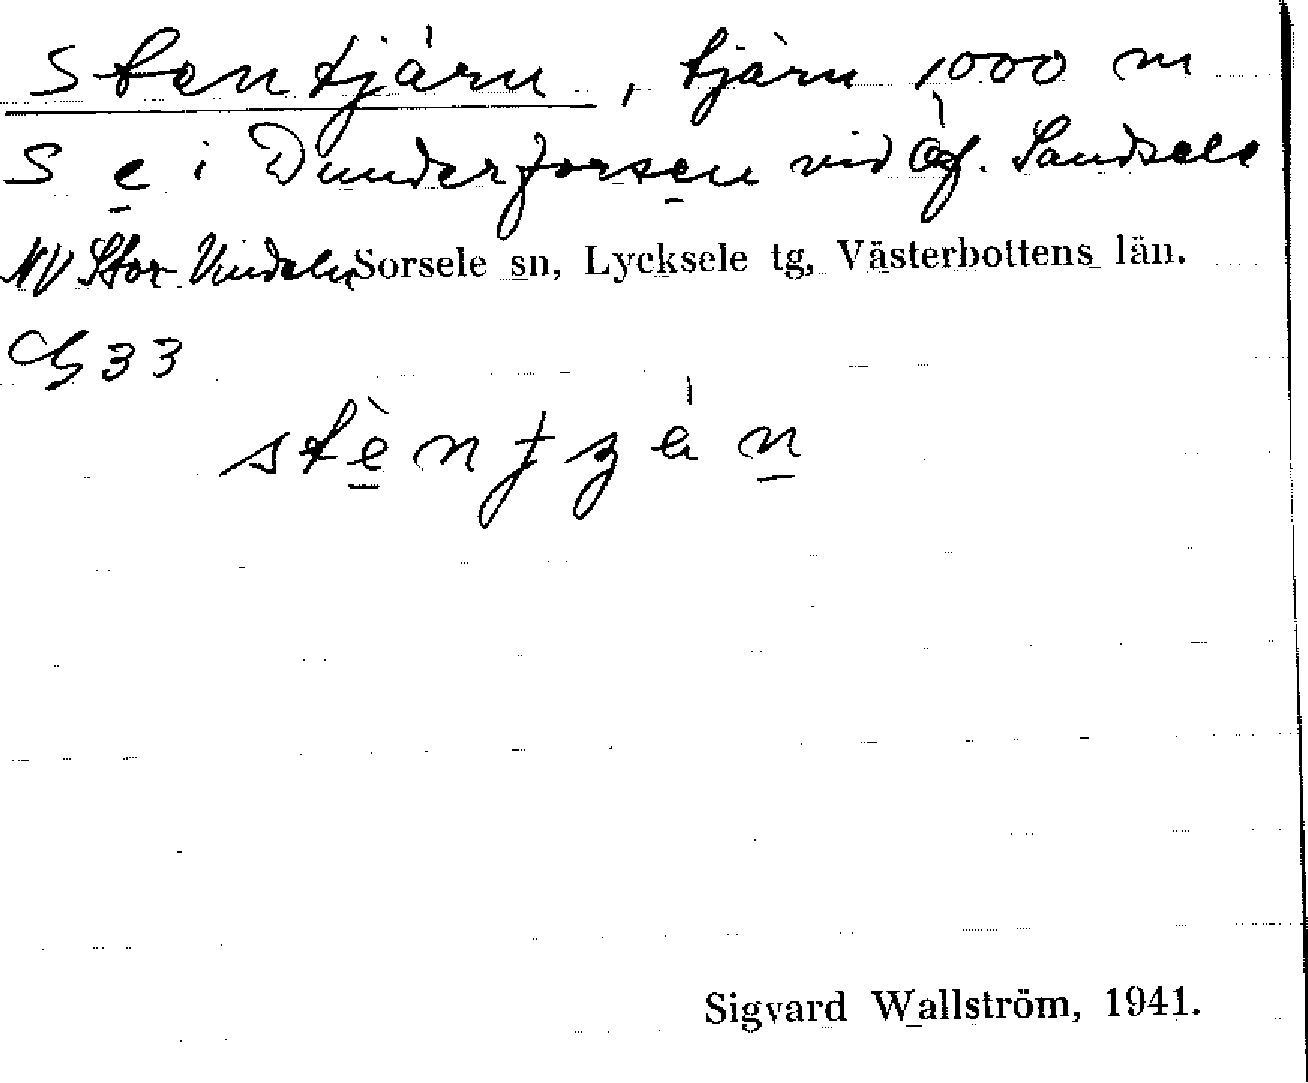 Stentjärn, tjärn 1000 m
S e i Dunderforsen vid Åf. Sandsele
NV Stor-Vindeln Sorsele sn, Lycksele tg, Västerbottens län.
33
Sigvard Wallström, 1941.